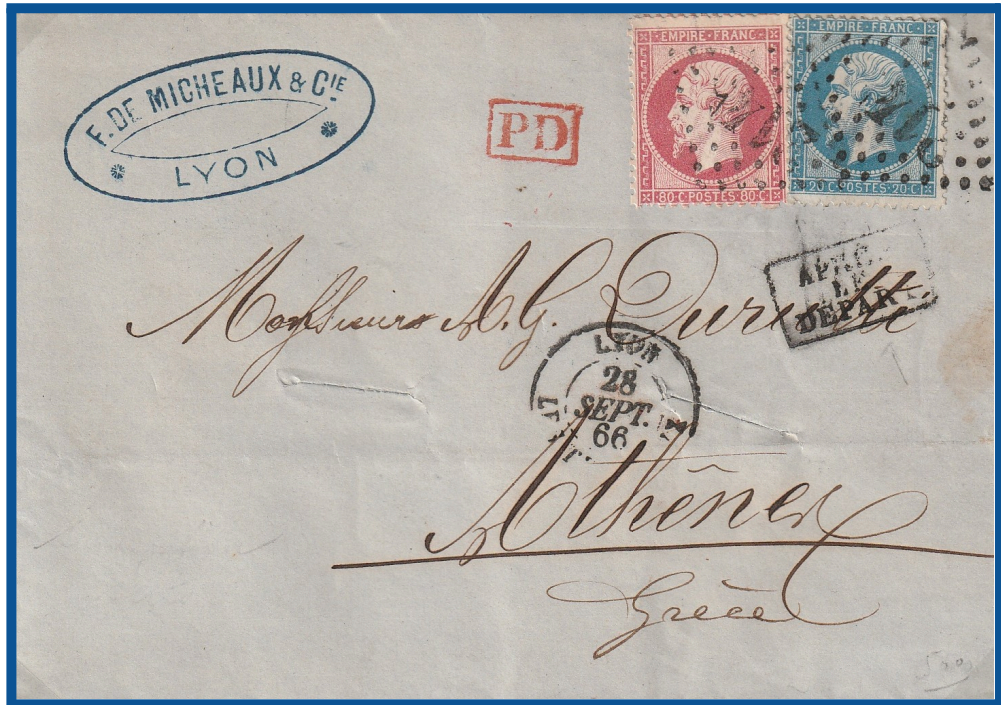 F. DE MICHEAUX & CIE
LYON
PD
EMPIRE FRANC
80 C POSTES 80 C
EMPIRE FRANC
20 C POSTES 20 C
LE
DEPART
Monsieur A. G.
LYON
28
SEPT.
66
Athènes
Grèce